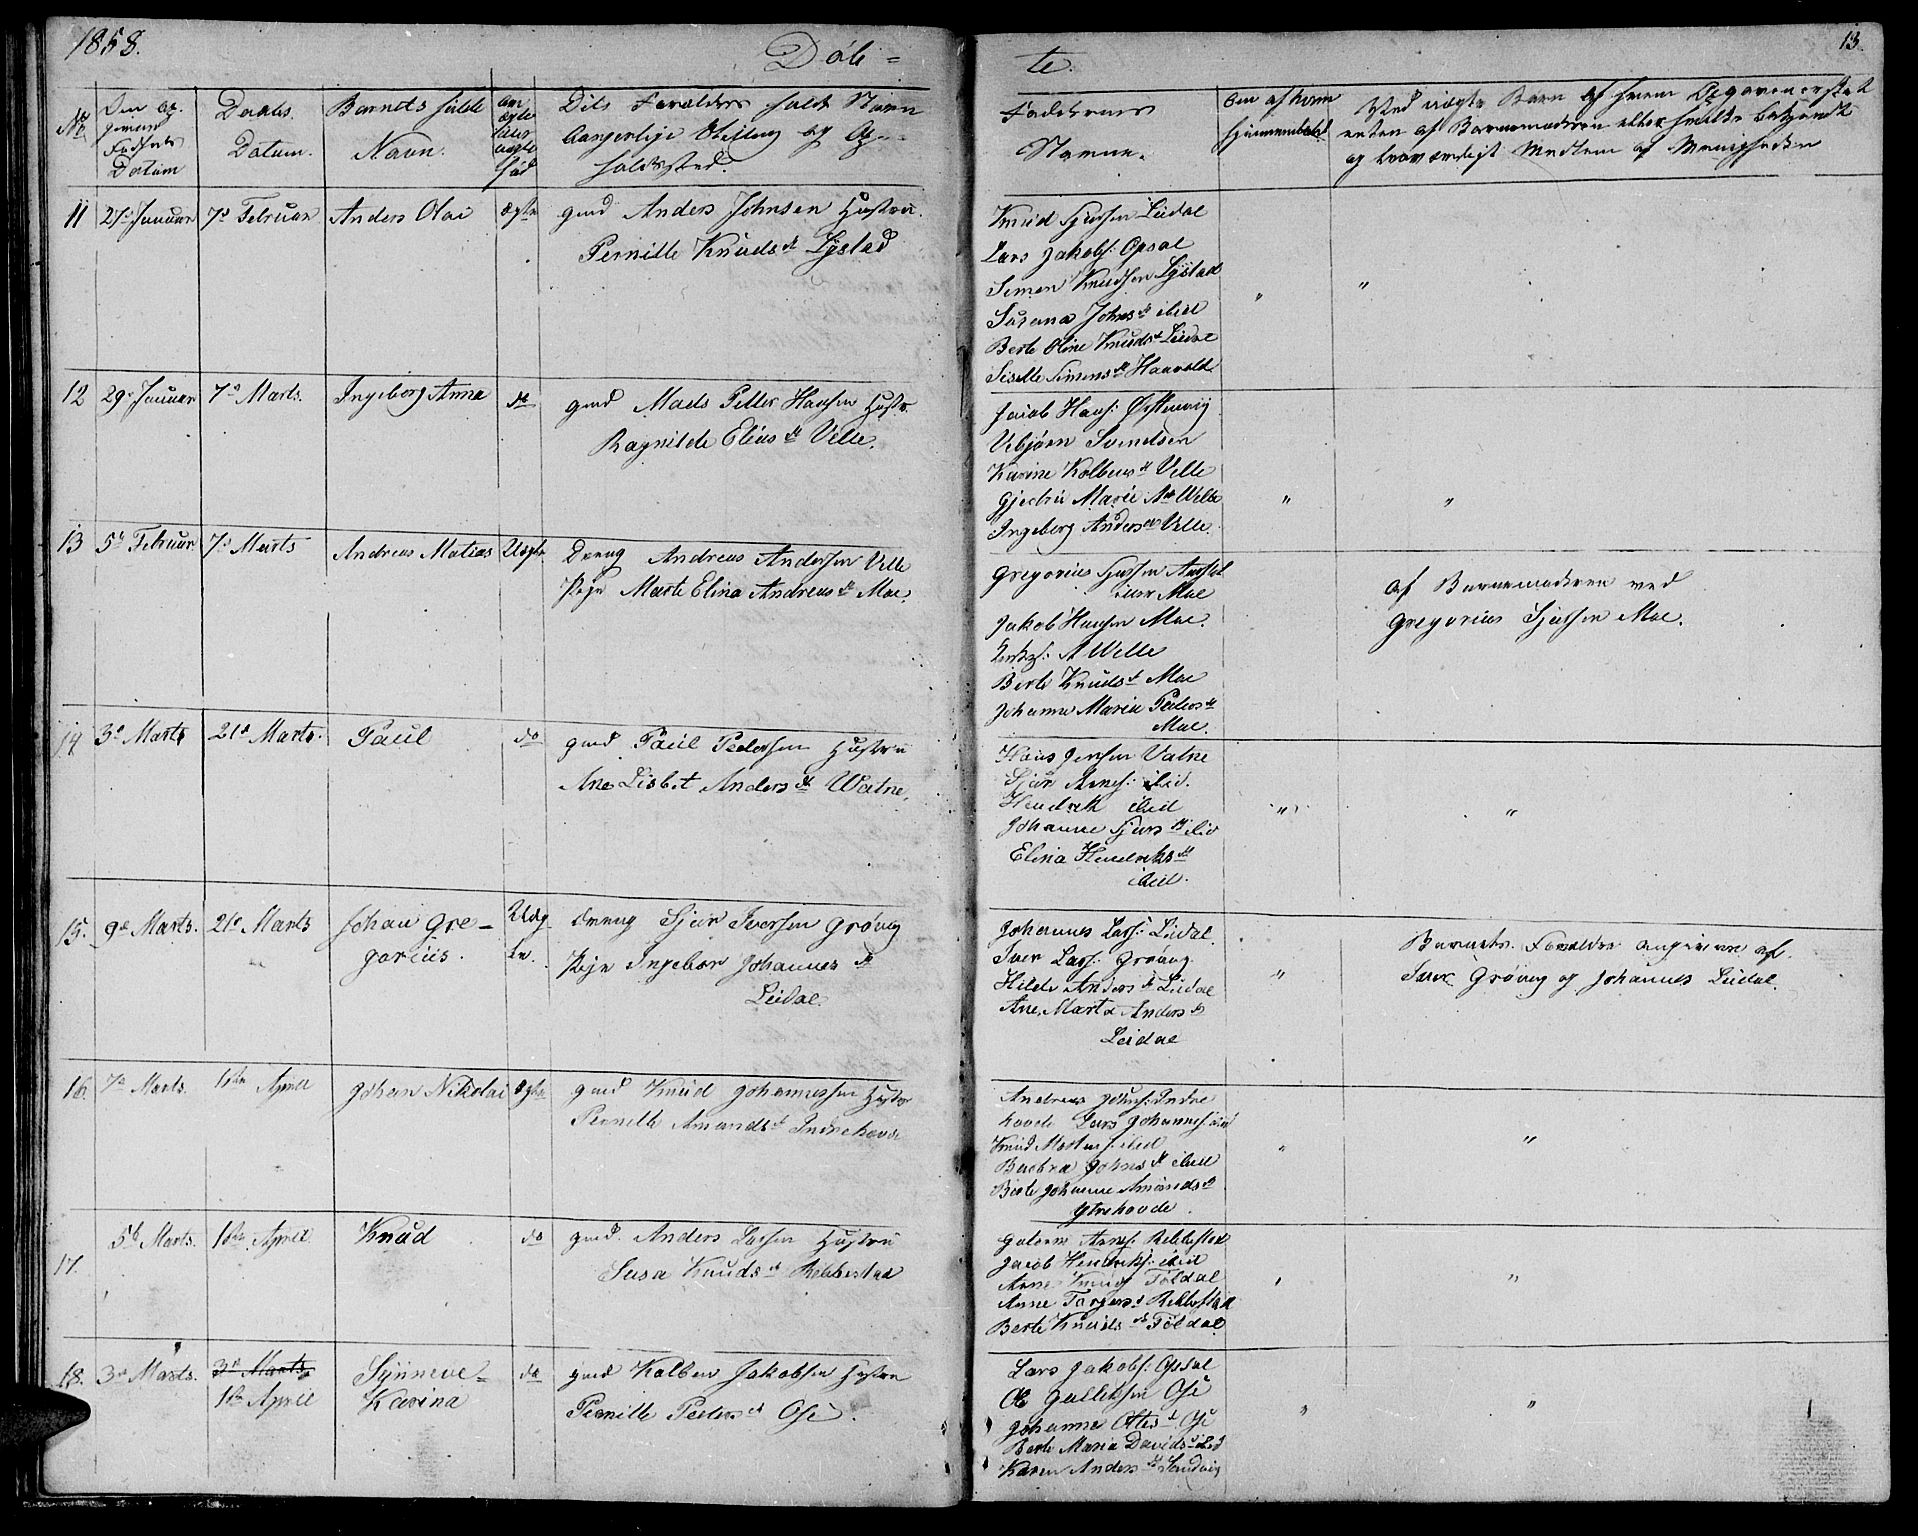 1858.
Døb =
te.
13.
No
Den op-
givne
Fødsels
Datum
Daabs
Datum.
Barnets fulde
Navn.
om
ægte
eller
uægte
fød
Dets Forældres fulde Navn
borgerlige Stilling og Op-
holdssted.
Faddernes
Navne.
Om af kom
hjemmedøbt
Ved uægte Barn af hvem Opgaven er skeet
enten af Barnemoderen eller hvilke bekjendte
og troværdigt Medlem af Menigheden
11 27de Januar 7de Februar Anders Olai ægte gmd Anders Johnsen Hustru
Pernille Knudsdt Lystad
Knud Sjursen Leidal
Lars Jakobs: Opsal
Simon Knudsen Lystad
Susana Johnsdt ibid
Berte Oline Knudsdt Leidal
Siselle Simonsdt Haavold
" "
12 29de Januar 7de Marts. Ingeborg Anna do gmd Mads Petter Hansen Hustr
Ragnilde Eliasdt Velle.
Jacob Hans: Ørstenvig
Vebjørn Svendsen
Karine Kolbensdt Velle
Gjertrü Marie Adt Velle
Ingeborg Andersdt Velle.
" "
13 5te Februar 7de Marts Andreas Matias Uægte Dreng Andreas Andersen Velle
Pige Marte Elina Andreasdt Moe.
Gregorius Sjursen
Moe
Jakob Hansen Moe.
A Velle
Berte Knudsdt Moe
Johanne Maria Pedersdt
Moe.
af Barnemoderen ved
Gregorius Sjursen Moe.
14 3de Marts 21de Marts. Paul do gmd Paul Pedersen Hustru
Ane Lisbet Andersdt Watne.
Hans Jensen Vatne
Sjur Arnes: ibid.
Hendrik ibid
Johanne Sjursdt ibid
Elina Hendriksdt
ibid.
" "
15. 9de Marts. 21de Marts Johan Gre-
gorius.
Uæg
te.
dreng Sjur Iversen Grøvig
Pige Ingebor Johannesdt
Leidal.
Johannes Lars: Leidal.
Iver Lars: Grøvig.
Hilde Andersdt Leidal
Ane Marta Andersdt
Leidal
"
Barnets Forældre angivne af
Iver Grøvig og Johannes Leidal.
16. 7de Marts. 1ste April Johan Nikolai Ægte gmd Knud Johannessen Hustr
Pernille Amundsdt Indrehovde
Andreas Johns: Indre
hovde Lars Johannes: ibid
Knud Mortens: ibid
Barbra Johnsdt ibid
Berte Johanne Amundsdt
Ytrehovde.
" "
17. 5te Marts. 1ste April Knud do gmd. Anders Larsen Hustru
Susa Knudsdt Rebbestad
Arnes: Rebbestad
Jacob Hendriks: ibid
Arne Knuds Føldal
Anne Torgersdt Rebbestad
Berte Knudsdt Føldal
" "
18. 3de Marts. 3de Marts.
1ste April
Synneve-
Karina
do gmd Kolben Jakobsen Hustru
Pernille Pedersdt Ose.
Lars Jakobs: Opsal
Ole Gulleksen Ose
Johanne Olesdt Ose
Berte Maria Davidsdt ibid
Karen Andersdt Sandvig
" "